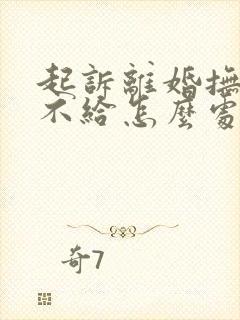 起訴離婚撫
不給怎麼處
奇7